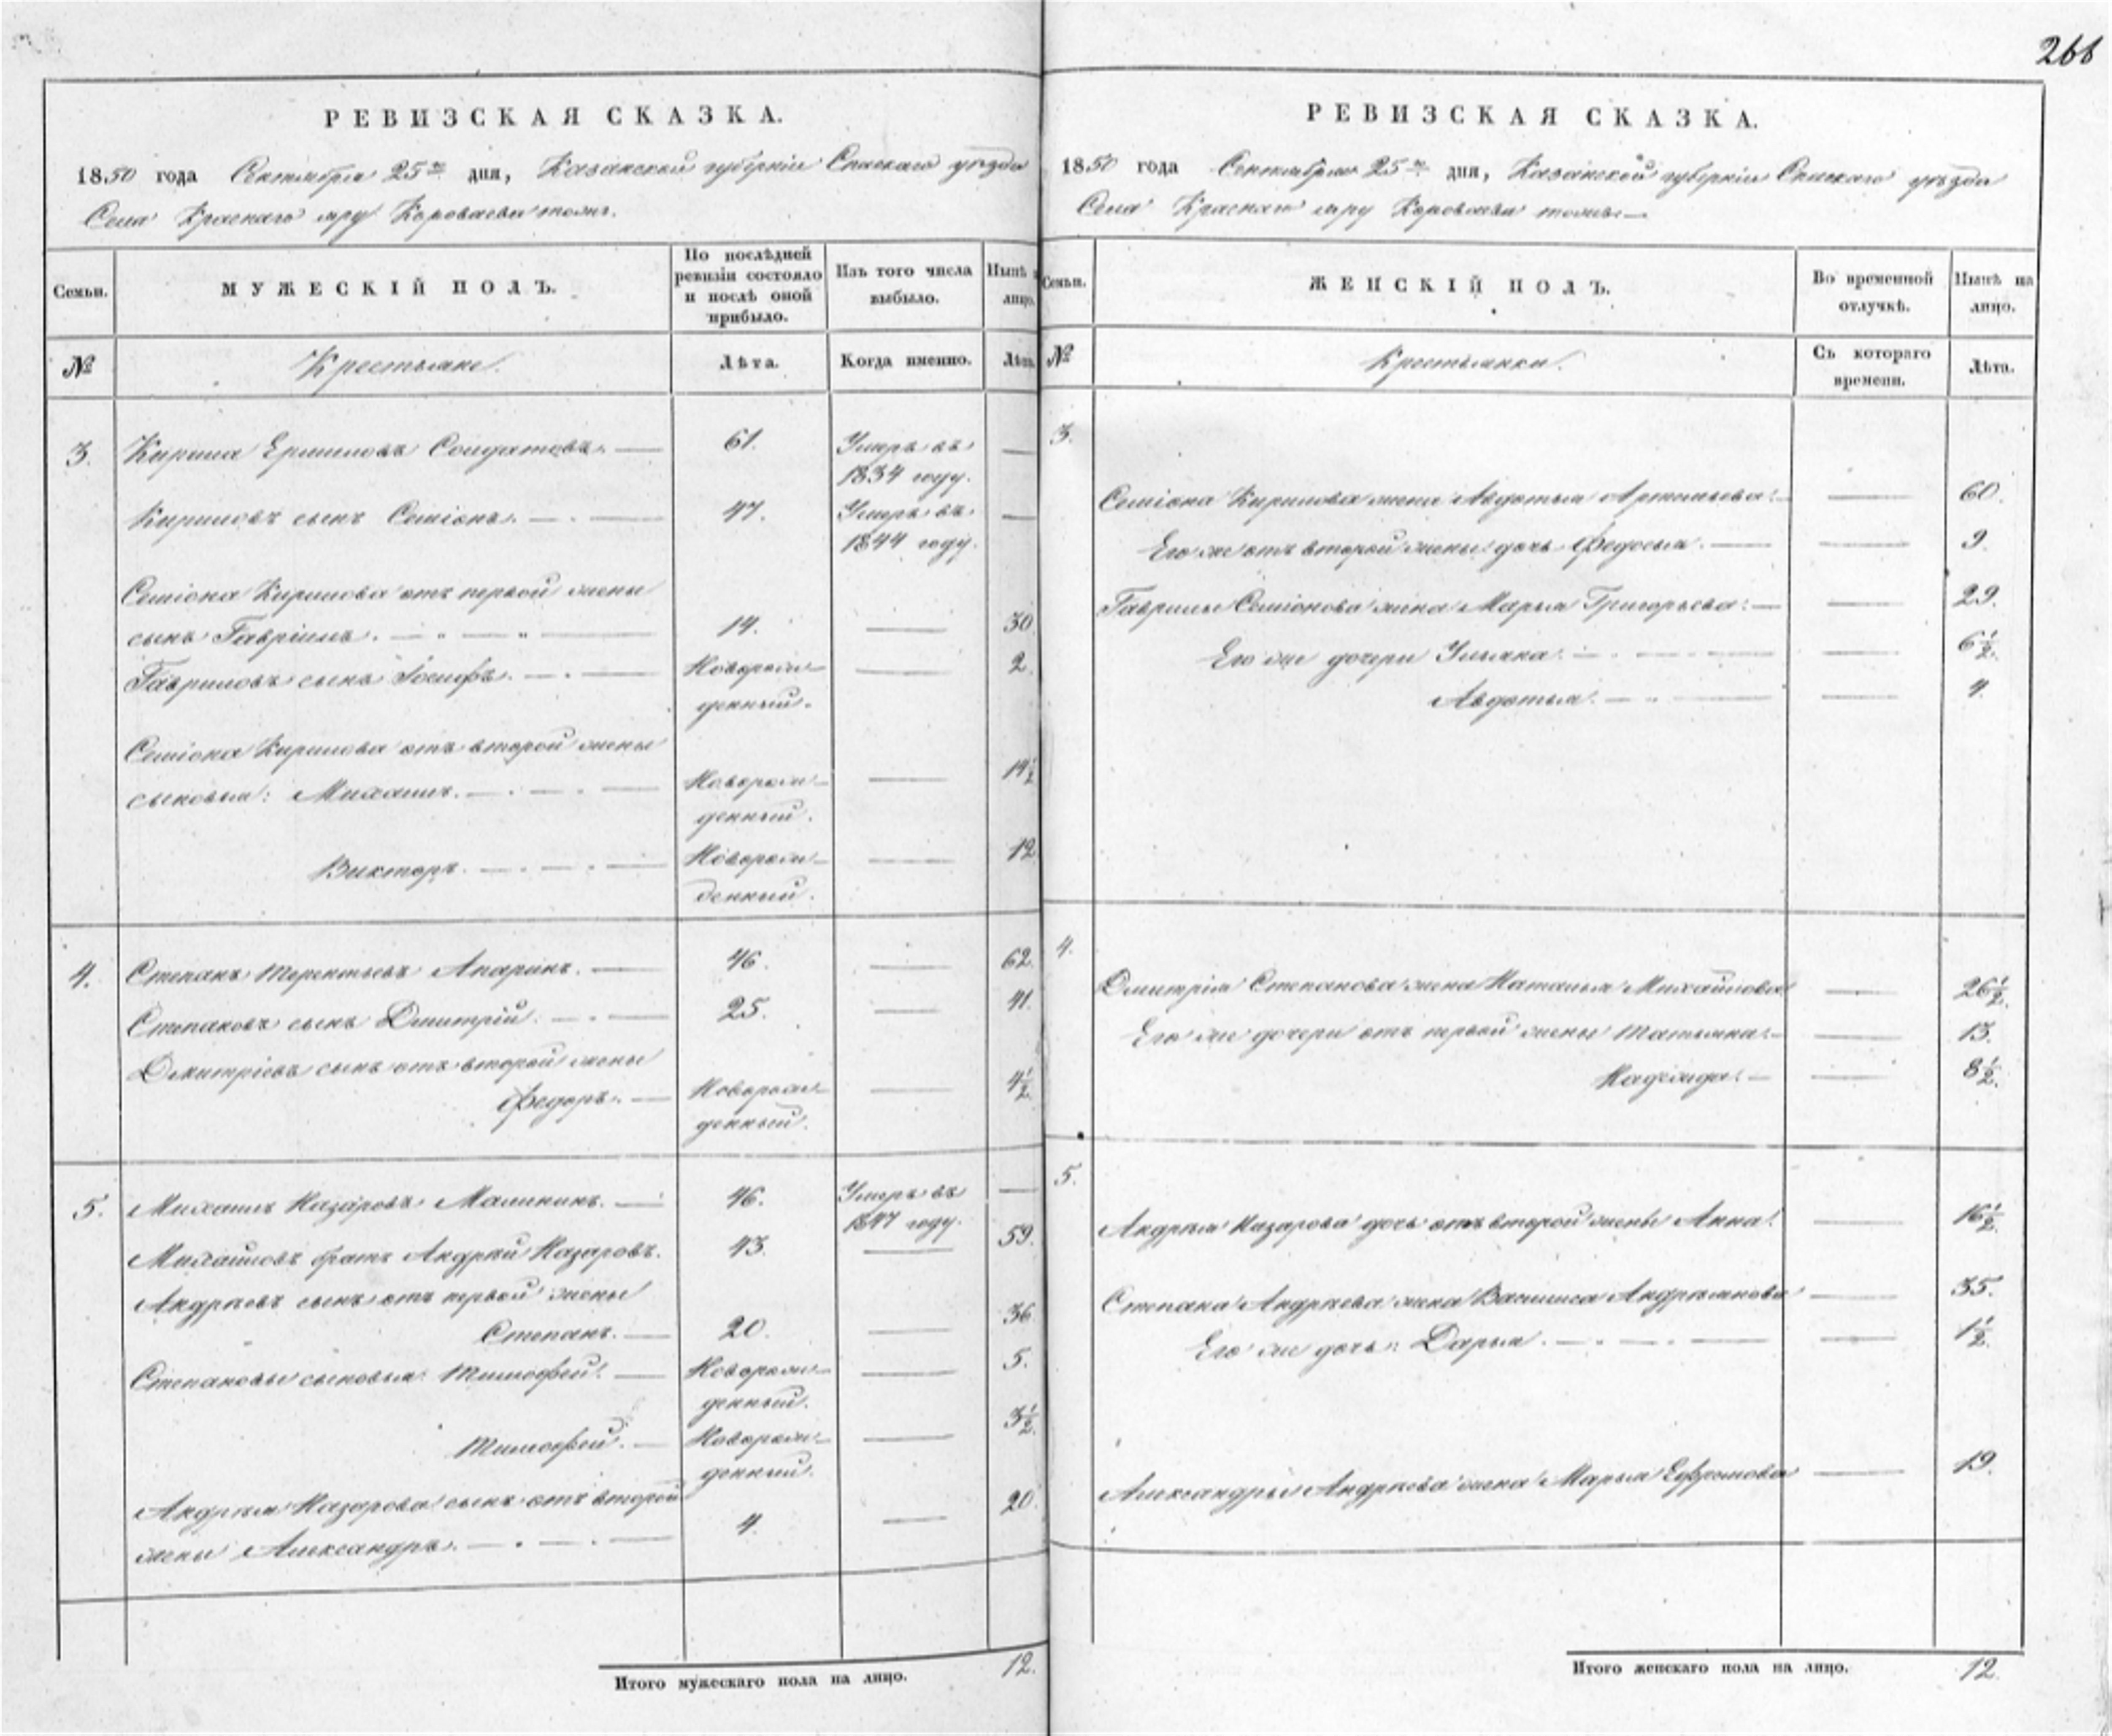 266
РЕВИЗСКАЯ СКАЗКА.
1850 года Сентября 25го дня, Казанской губернии Спаскаго уезда
Села Краснаго яру Короваева тожъ.
Семьи.
МУЖЕСКІЙ ПОЛЪ.
По послѣдней ревизіи состояло и послѣ оной прибыло.
Изъ того числа выбыло.
Нынѣ на лицо.
№
Крестьяне.
Лѣта.
Когда именно.
Лѣта.
3. Кирила Ермиловъ Солдатовъ. 61. Умеръ въ —
1834 году.
Кириловъ сынъ Семіонъ. 47. Умеръ въ —
1844 году.
Семіона Кирилова отъ первой жены
сынъ Гавріилъ. 14. — 30
Гавриловъ сынъ Іосифъ. Новорож- — 2.
денный.
Семіона Кирилова отъ второй жены
сыновья: Михаилъ. Новорож- — 14½
денный.
Викторъ. Новорож- — 12
денный.
4. Степанъ Терентьевъ Апаринъ. 46. — 62.
Степановъ сынъ Дмитрій. 25. — 41.
Дмитріевъ сынъ отъ второй жены
Федоръ. Новорож- — 4½
денный.
5. Михаилъ Назаровъ Малининъ. 46. Умеръ въ —
1847 году.
Михаиловъ братъ Андрей Назаровъ. 43. — 59.
Андреевъ сынъ отъ первой жены
Степанъ. 20. — 36
Степановы сыновья: Тимофей. Новорож- — 5.
денный.
Тимофей. Новорож- — 3½
денный.
Андрея Назарова сынъ отъ второй
жены Александръ. 4. — 20.
Итого мужескаго пола на лицо. 12.
РЕВИЗСКАЯ СКАЗКА.
1850 года Сентября 25го дня, Казанской губерніи Спаскаго уѣзда
Села Краснаго яру Короваева тожъ.
Семьи.
ЖЕНСКІЙ ПОЛЪ.
Во временной отлучкѣ.
Нынѣ на лицо.
№
Крестьянки.
Съ котораго времени.
Лѣта.
3.
Семіона Кирилова жена Авдотья Артемьева. — 60.
Его же отъ второй жены дочь Федосья. — 9.
Гаврилы Семіонова жена Марья Григорьева. — 29.
Его же дочери Ульяна. — 6½
Авдотья. — 4.
4.
Дмитрія Степанова жена Наталья Михайлова — 26½
Его же дочери отъ первой жены Татьяна. — 13.
Надежда. — 8½
5.
Андрея Назарова дочь отъ второй жены Анна. — 16½
Степана Андреева жена Василиса Андреянова — 35.
Его же дочь: Дарья. — 1½
Александры Андреева жена Марья Ефремова — 19.
Итого женскаго пола на лицо. 12.